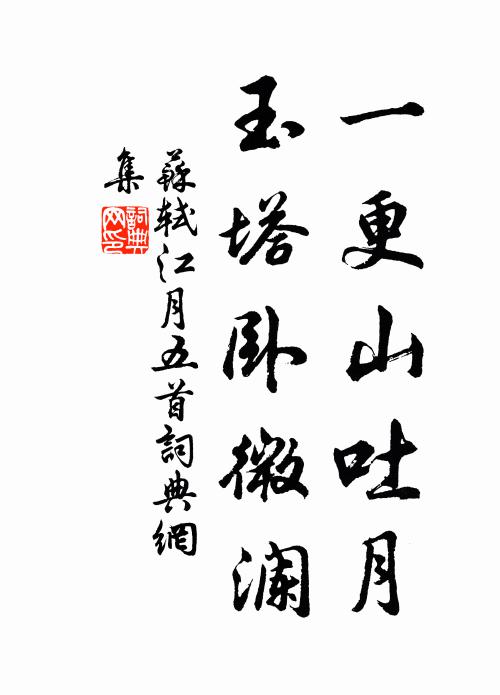 一更山吐月
玉塔卧微澜
蘇軾江月五首詞典網
集
詞典网印